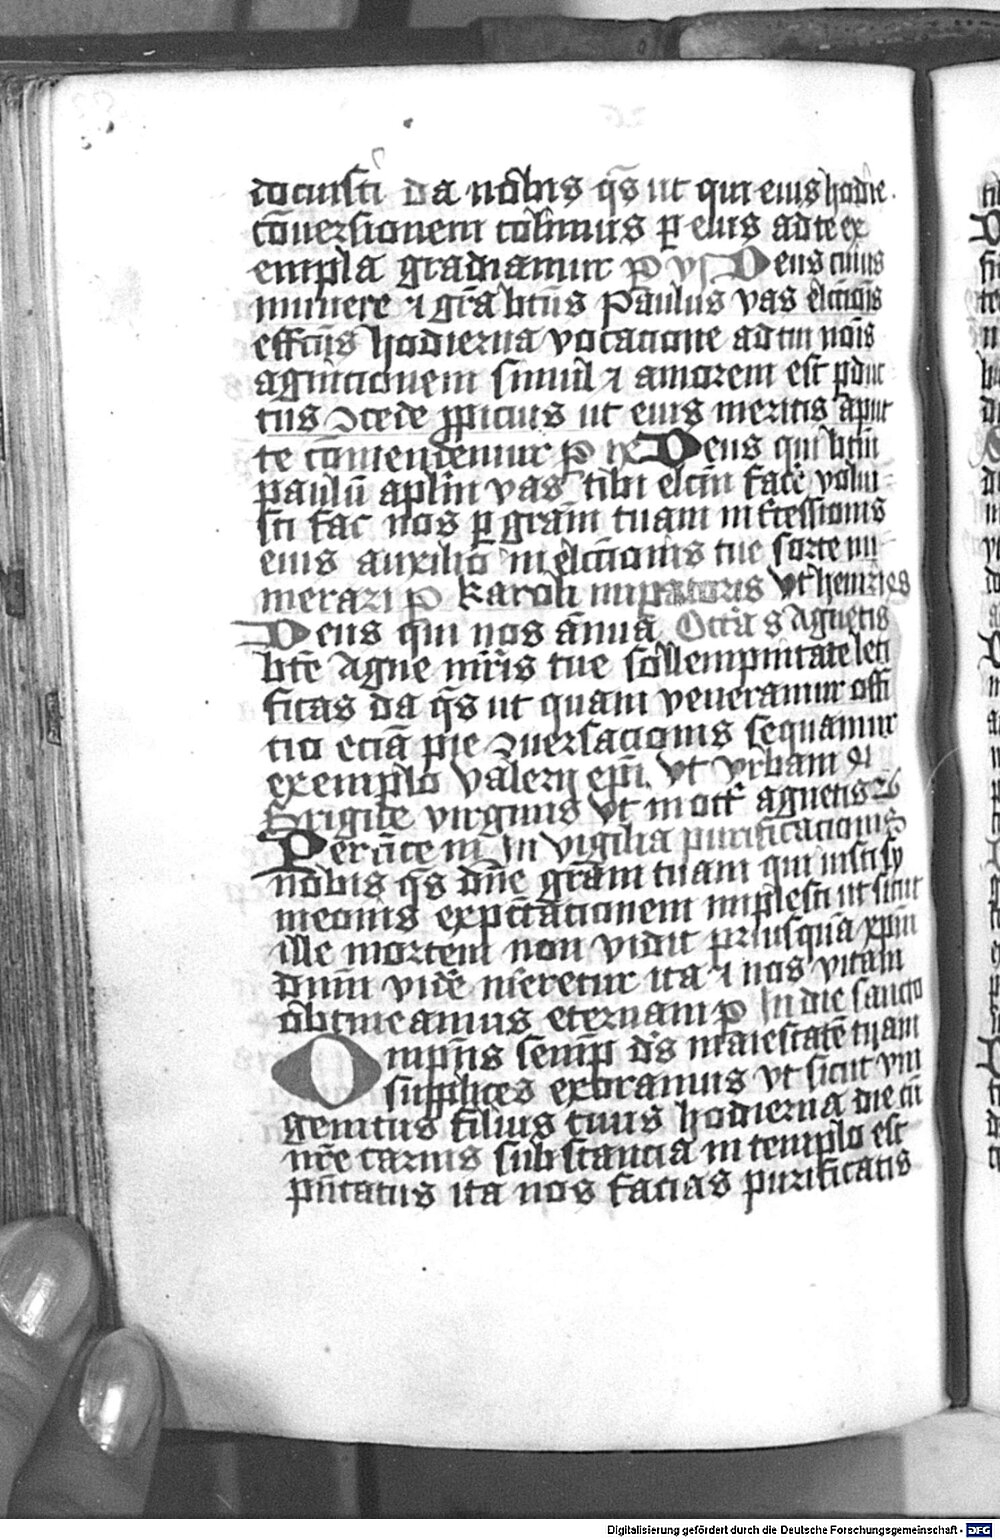 docuisti da nob̄is q̄s ut qui eius hodie
cōuersionem colimus ꝑ eius ad te ex
empla gradiamur p̄ vs̄ Deus cuius
munere ⁊ gr̄a bt̄us Paulus vas elcc̄iōis
effcūs hodierna vocacione ad tui nōis
agnicionem simul ⁊ amorem est ꝑduc
tus ↄcede ꝓpicius ut eius meritis aput
te cōmendemur p̄ Deus qui bt̄m
paulū aplm̄ vas tibi elcm̄ facē volui
sti fac nos ꝑ gr̄am tuam int̄cessionis
eius auxilio in elcc̄ionis tue sorte nu
merari p̄ Karoli inperatoris Vt henrici
Deus qui nos ānua Octāa s Agnetis
bt̄e Agne mr̄is tue sollempnitate leti
ficas da q̄s ut quam veneramur offi
cio eciā pie ↄuersacionis sequamur
exemplo Valerij ep̄i. Vt Vrbani
Brigide virginis Vt in oct̄ agnetis 26
Per crucem In vigilia purificacionis
nobis q̄s dn̄e gr̄am tuam qui iusti sy
meonis expc̄tacionem implesti ut sicut
ille mortem non vidit priusquā xp̄m
dnm̄ vidē meretur ita ⁊ nos vitam
obtineamus eternam p̄ In die sancto
Omp̄ns semp̄ ds̄ maiestatē tuam
supplices exoramus vt sicut vni
genitus filius tuus hodierna die cū
nr̄e carnis substancia in templo est
pn̄tatus ita nos facias purificatis
Digitalisierung gefördert durch die Deutsche Forschungsgemeinschaft - DFG